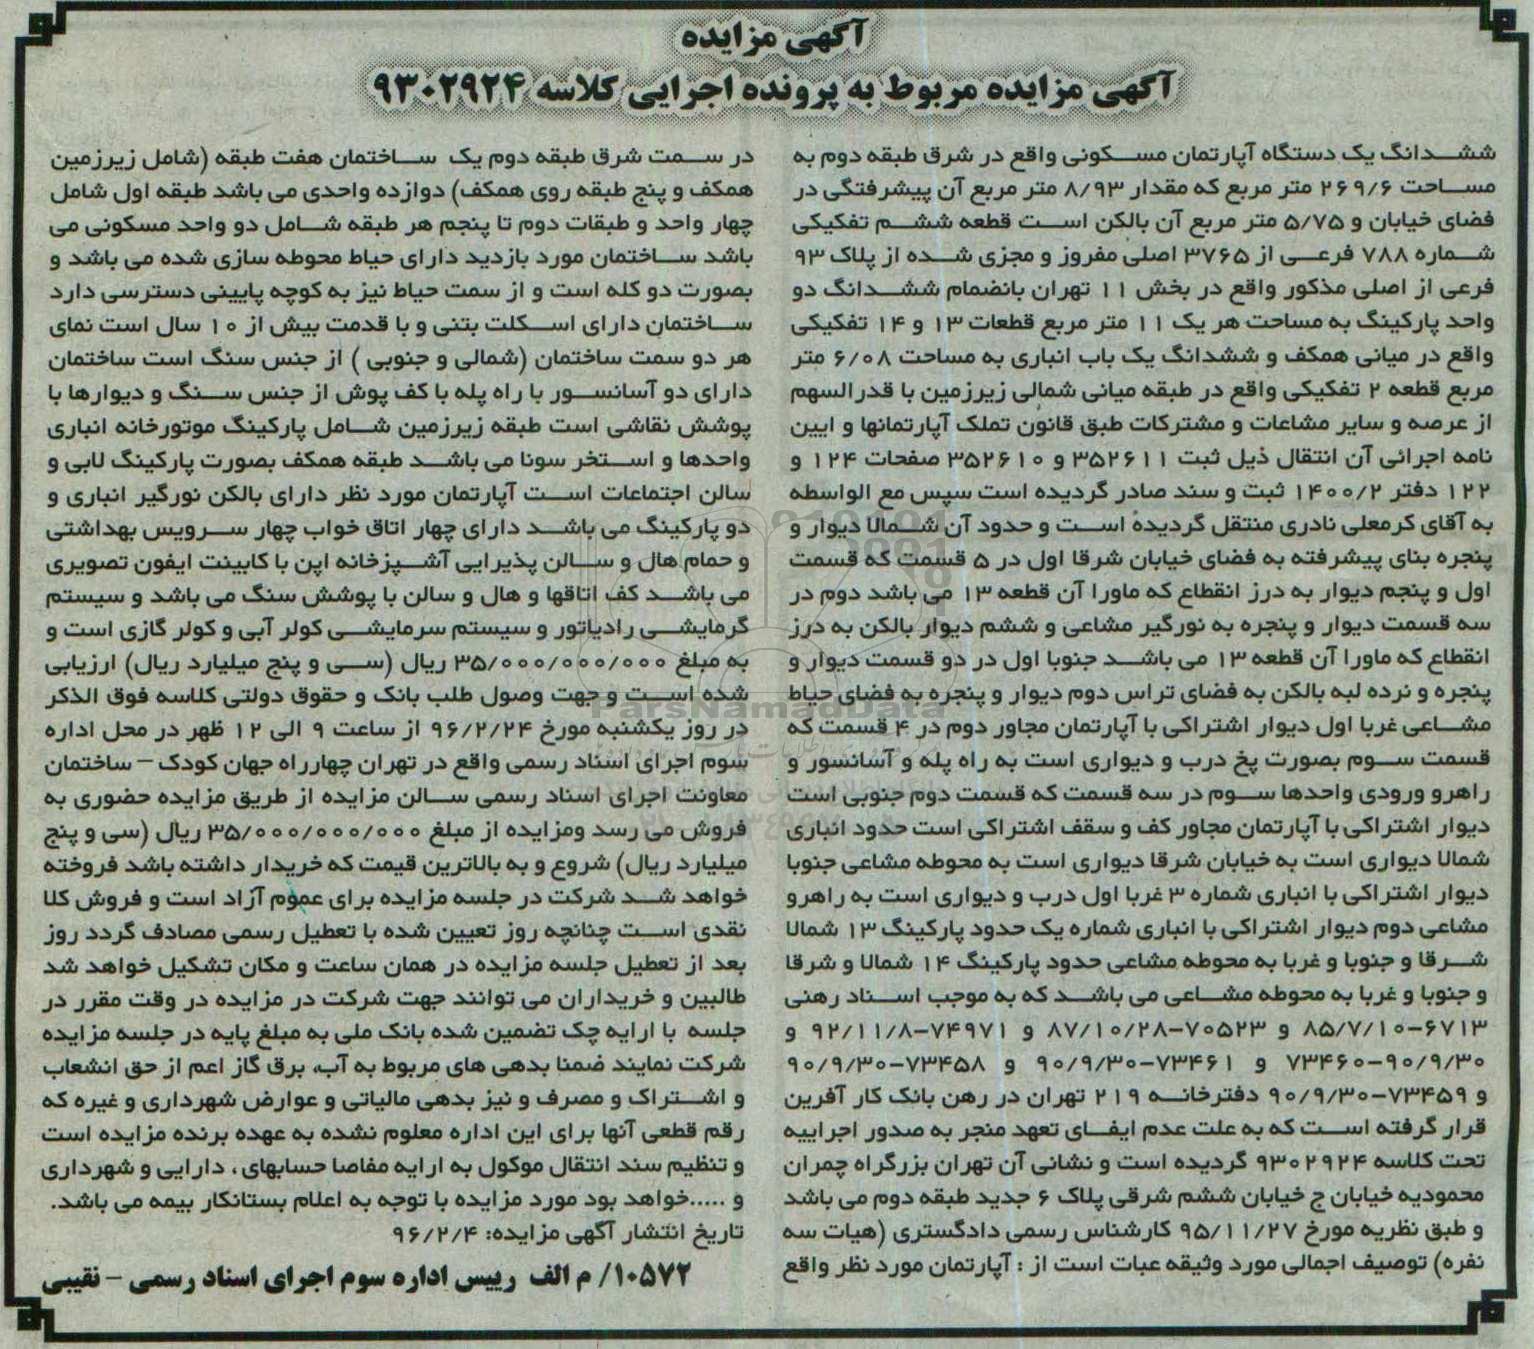 آگهی مزایده
آگهی مزایده مربوط به پرونده اجرایی کلاسه ۹۳۰۲۹۲۴
ششدانگ یک دستگاه آپارتمان مسکونی واقع در شرق طبقه دوم به
مساحت ۲۶۹/۶ متر مربع که مقدار ۸/۹۳ متر مربع آن پیشرفتگی در
فضای خیابان و ۵/۷۵ متر مربع آن بالکن است قطعه ششم تفکیکی
شماره ۷۸۸ فرعی از ۳۷۶۵ اصلی مفروز و مجزی شده از پلاک ۹۳
فرعی از اصلی مذکور واقع در بخش ۱۱ تهران بانضمام ششدانگ دو
واحد پارکینگ به مساحت هر یک ۱۱ متر مربع قطعات ۱۳ و ۱۴ تفکیکی
واقع در میانی همکف و ششدانگ یک باب انباری به مساحت ۶/۰۸ متر
مربع قطعه ۲ تفکیکی واقع در طبقه میانی شمالی زیرزمین با قدرالسهم
از عرصه و سایر مشاعات و مشترکات طبق قانون تملک آپارتمانها و ایین
نامه اجرائی آن انتقال ذیل ثبت ۳۵۲۶۱۱ و ۳۵۲۶۱۰ صفحات ۱۲۴ و
۱۲۲ دفتر ۱۴۰۰/۲ ثبت و سند صادر گردیده است سپس مع الواسطه
به آقای کرمعلی نادری منتقل گردیده است و حدود آن شمالا دیوار و
پنجره بنای پیشرفته به فضای خیابان شرقا اول در ۵ قسمت که قسمت
اول و پنجم دیوار به درز انقطاع که ماورا آن قطعه ۱۳ می باشد دوم در
سه قسمت دیوار و پنجره به نورگیر مشاعی و ششم دیوار بالکن به درز
انقطاع که ماورا آن قطعه ۱۳ می باشد جنوبا اول در دو قسمت دیوار و
پنجره و نرده لبه بالکن به فضای تراس دوم دیوار و پنجره به فضای حیاط
مشاعی غربا اول دیوار اشتراکی با آپارتمان مجاور دوم در ۴ قسمت که
قسمت سوم بصورت پخ درب و دیواری است به راه پله و آسانسور و
راهرو ورودی واحدها سوم در سه قسمت که قسمت دوم جنوبی است
دیوار اشتراکی با آپارتمان مجاور کف و سقف اشتراکی است حدود انباری
شمالا دیواری است به خیابان شرقا دیواری است به محوطه مشاعی جنوبا
دیوار اشتراکی با انباری شماره ۳ غربا اول درب و دیواری است به راهرو
مشاعی دوم دیوار اشتراکی با انباری شماره یک حدود پارکینگ ۱۳ شمالا
شرقا و جنوبا و غربا به محوطه مشاعی حدود پارکینگ ۱۴ شمالا و شرقا
و جنوبا و غربا به محوطه مشاعی می باشد که به موجب اسناد رهنی
۶۷۱۳-۸۵/۷/۱۰ و ۷۰۵۲۳-۸۷/۱۰/۲۸ و ۷۴۹۷۱-۹۲/۱۱/۸ و
۷۳۴۶۰-۹۰/۹/۳۰ و ۷۳۴۶۱-۹۰/۹/۳۰ و ۷۳۴۵۸-۹۰/۹/۳۰
و ۷۳۴۵۹-۹۰/۹/۳۰ دفترخانه ۲۱۹ تهران در رهن بانک کار آفرین
قرار گرفته است که به علت عدم ایفای تعهد منجر به صدور اجراییه
تحت کلاسه ۹۳۰۲۹۲۴ گردیده است و نشانی آن تهران بزرگراه چمران
محمودیه خیابان ج خیابان ششم شرقی پلاک ۶ جدید طبقه دوم می باشد
و طبق نظریه مورخ ۹۵/۱۱/۲۷ کارشناس رسمی دادگستری (هیات سه
نفره) توصیف اجمالی مورد وثیقه عبات است از : آپارتمان مورد نظر واقع
در سمت شرق طبقه دوم یک ساختمان هفت طبقه (شامل زیرزمین
همکف و پنج طبقه روی همکف) دوازده واحدی می باشد طبقه اول شامل
چهار واحد و طبقات دوم تا پنجم هر طبقه شامل دو واحد مسکونی می
باشد ساختمان مورد بازدید دارای حیاط محوطه سازی شده می باشد و
بصورت دو کله است و از سمت حیاط نیز به کوچه پایینی دسترسی دارد
ساختمان دارای اسکلت بتنی و با قدمت بیش از ۱۰ سال است نمای
هر دو سمت ساختمان (شمالی و جنوبی ) از جنس سنگ است ساختمان
دارای دو آسانسور با راه پله با کف پوش از جنس سنگ و دیوارها با
پوشش نقاشی است طبقه زیرزمین شامل پارکینگ موتورخانه انباری
واحدها و استخر سونا می باشد طبقه همکف بصورت پارکینگ لابی و
سالن اجتماعات است آپارتمان مورد نظر دارای بالکن نورگیر انباری و
دو پارکینگ می باشد دارای چهار اتاق خواب چهار سرویس بهداشتی
و حمام هال و سالن پذیرایی آشپزخانه اپن با کابینت ایفون تصویری
می باشد کف اتاقها و هال و سالن با پوشش سنگ می باشد و سیستم
گرمایشی رادیاتور و سیستم سرمایشی کولر آبی و کولر گازی است و
به مبلغ ۳۵/۰۰۰/۰۰۰/۰۰۰ ریال (سی و پنج میلیارد ریال) ارزیابی
شده است و جهت وصول طلب بانک و حقوق دولتی کلاسه فوق الذکر
در روز یکشنبه مورخ ۹۶/۲/۲۴ از ساعت ۹ الی ۱۲ ظهر در محل اداره
سوم اجرای اسناد رسمی واقع در تهران چهارراه جهان کودک – ساختمان
معاونت اجرای اسناد رسمی سالن مزایده از طریق مزایده حضوری به
فروش می رسد ومزایده از مبلغ ۳۵/۰۰۰/۰۰۰/۰۰۰ ریال (سی و پنج
میلیارد ریال) شروع و به بالاترین قیمت که خریدار داشته باشد فروخته
خواهد شد شرکت در جلسه مزایده برای عموم آزاد است و فروش کلا
نقدی است چنانچه روز تعیین شده با تعطیل رسمی مصادف گردد روز
بعد از تعطیل جلسه مزایده در همان ساعت و مکان تشکیل خواهد شد
طالبین و خریداران می توانند جهت شرکت در مزایده در وقت مقرر در
جلسه با ارایه چک تضمین شده بانک ملی به مبلغ پایه در جلسه مزایده
شرکت نمایند ضمنا بدهی های مربوط به آب، برق گاز اعم از حق انشعاب
و اشتراک و مصرف و نیز بدهی مالیاتی و عوارض شهرداری و غیره که
رقم قطعی آنها برای این اداره معلوم نشده به عهده برنده مزایده است
و تنظیم سند انتقال موکول به ارایه مفاصا حسابهای، دارایی و شهرداری
و .....خواهد بود مورد مزایده با توجه به اعلام بستانکار بیمه می باشد.
تاریخ انتشار آگهی مزایده: ۹۶/۲/۴
۱۰۵۷۲/ م الف رییس اداره سوم اجرای اسناد رسمی – نقیبی
ParsNamadData